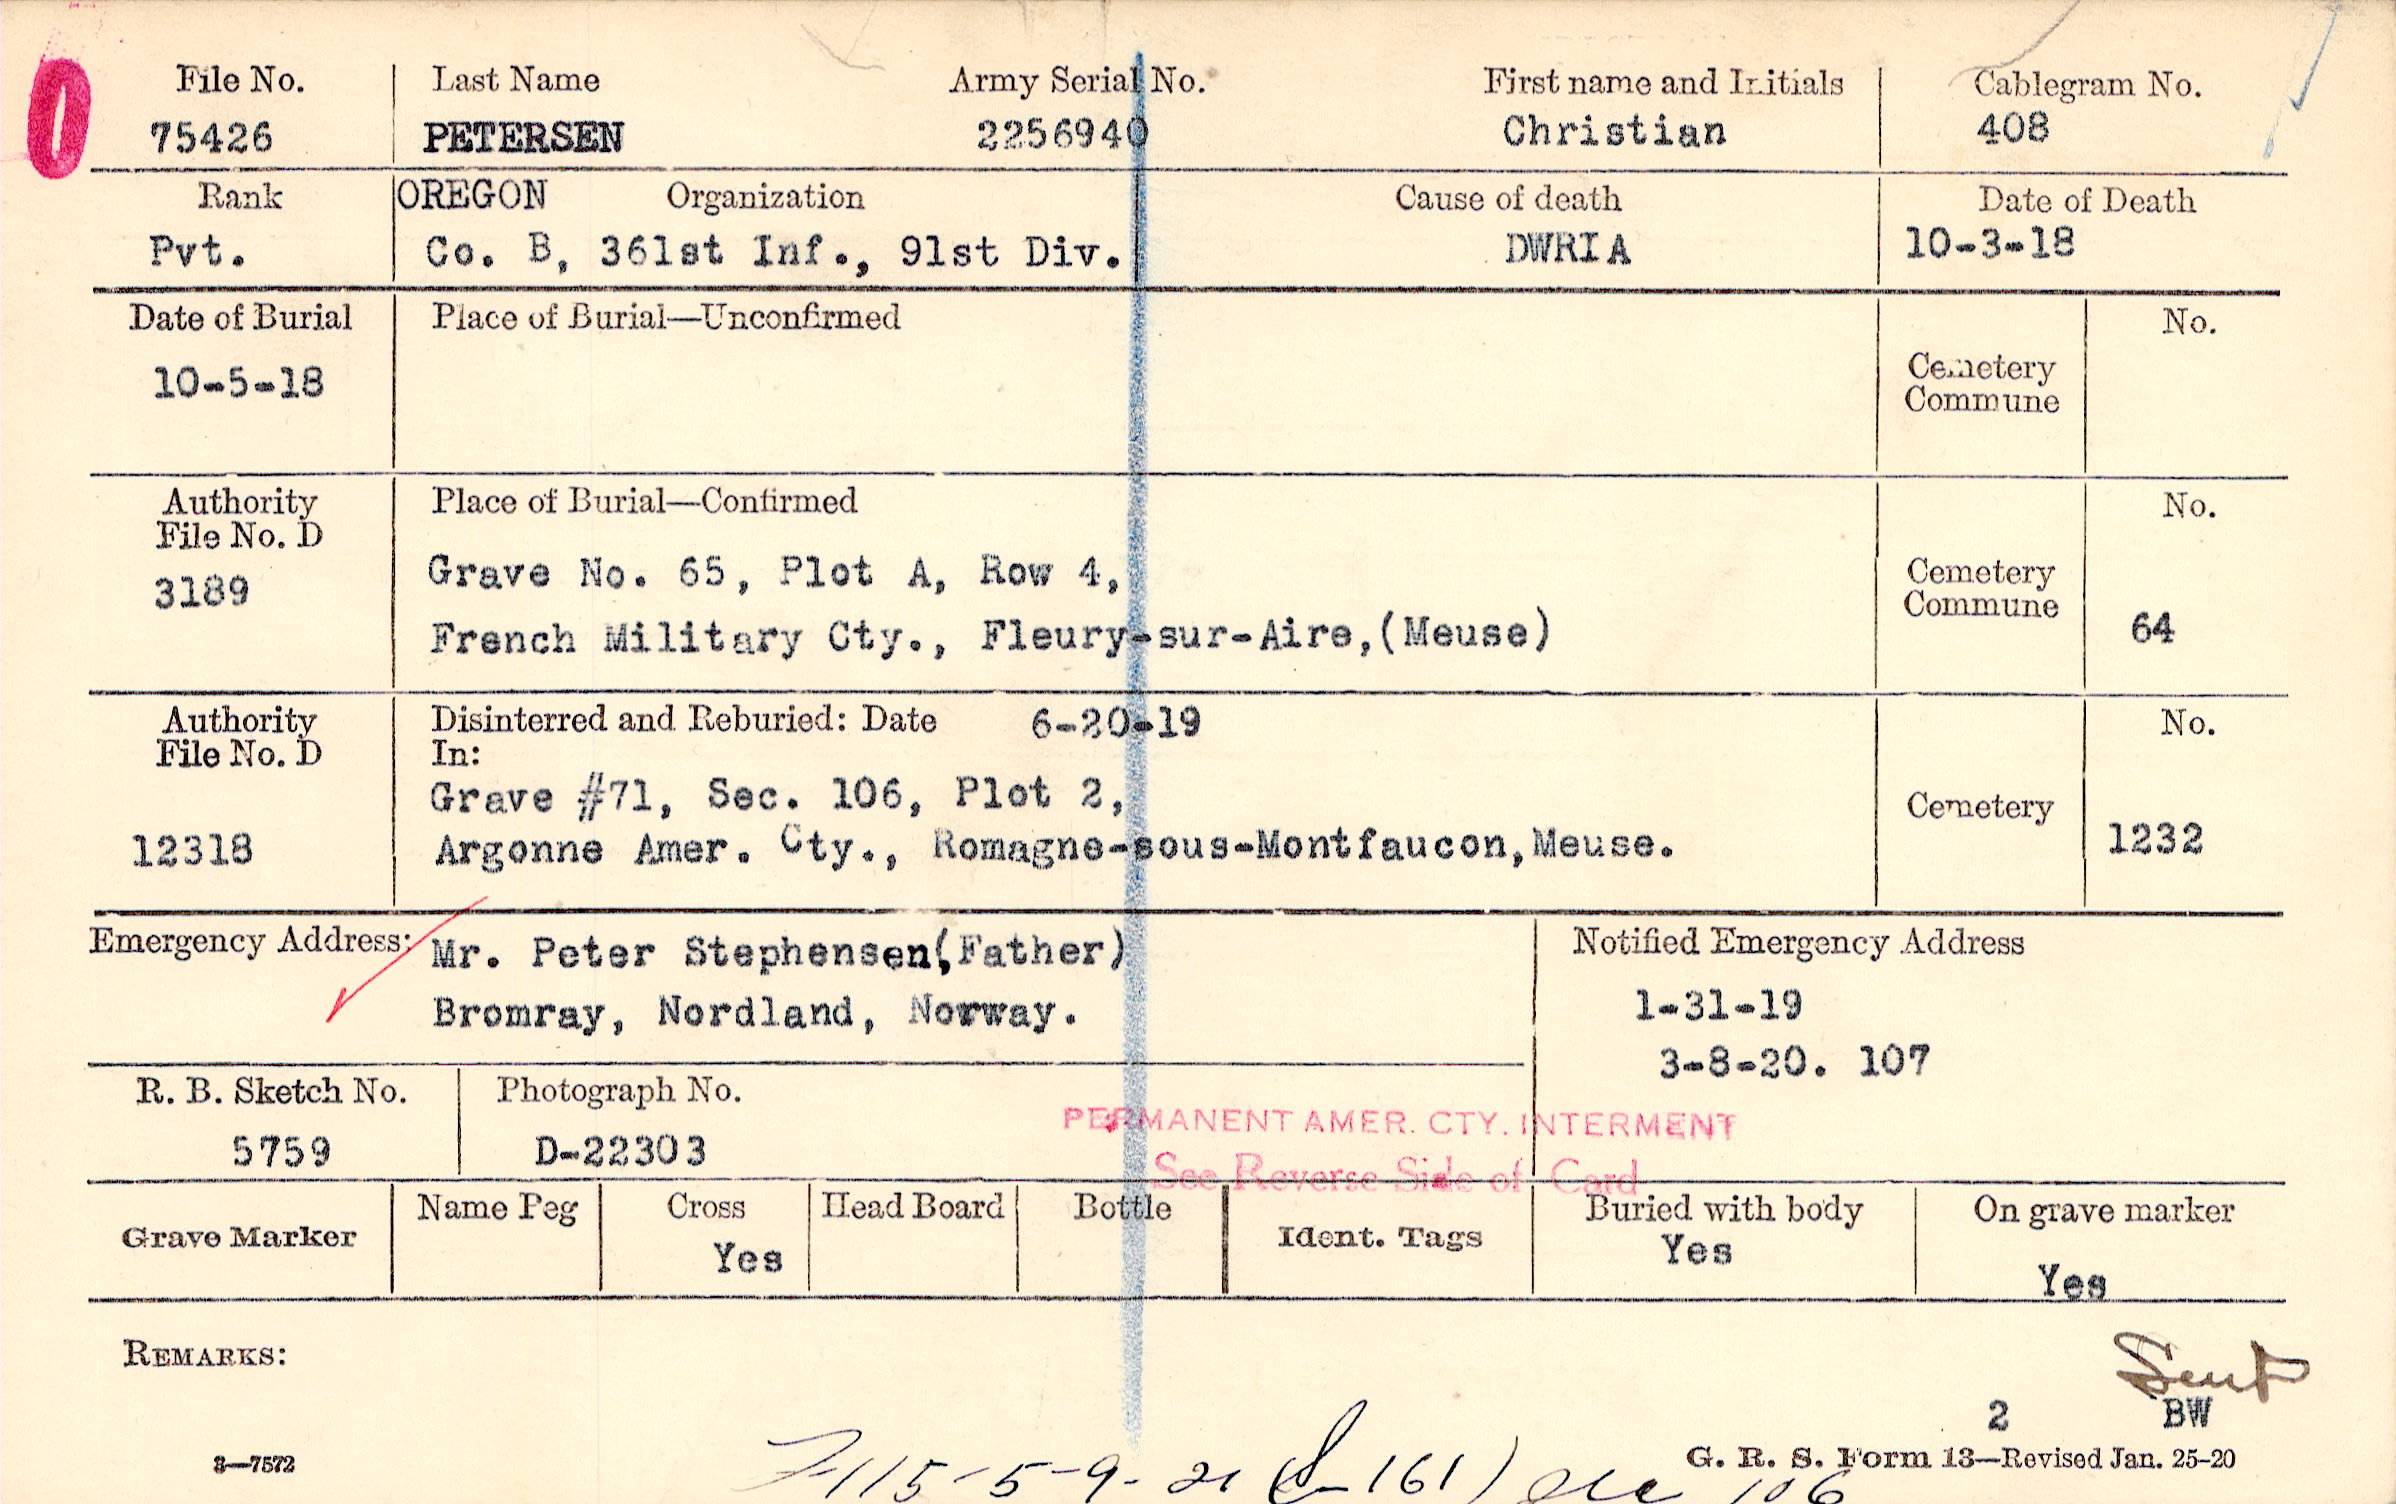 File No. Last Name Army Serial No. First name and Initials Cablegram No.
75426 PETERSEN 2256940 Christian 408
Rank OREGON Organization Cause of death Date of Death
Pvt. Co. B, 361st Inf., 91st Div. DWRIA 10-3-18
Date of Burial Place of Burial—Unconfirmed No.
10-5-18 Cemetery
Commune
Authority Place of Burial—Confirmed No.
File No. D
3189 Grave No. 65, Plot A, Row 4, Cemetery
Commune
French Military Cty., Fleury-sur-Aire,(Meuse) 64
Authority Disinterred and Reburied: Date 6-20-19 No.
File No. D In:
Grave #71, Sec. 106, Plot 2, Cemetery
12318 Argonne Amer. Cty., Romagne-sous-Montfaucon,Meuse. 1232
Emergency Address: Mr. Peter Stephensen(Father) Notified Emergency Address
Bromray, Nordland, Norway. 1-31-19
3-8-20. 107
R. B. Sketch No. Photograph No.
PERMANENT AMER. CTY. INTERMENT
5759 D-22303
See Reverse Side of Card
Grave Marker Name Peg Cross Head Board Bottle Ident. Tags Buried with body On grave marker
Yes Yes Yes
REMARKS:
Sent
2 BW
3—7572 G. R. S. Form 13—Revised Jan. 25-20
115-5-9-21 161) 106